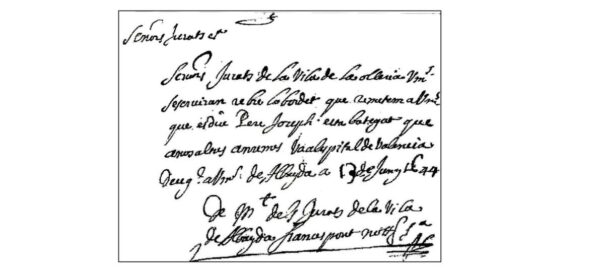 Señors Jurats et
Señors Jurats de la Vila de la ollaria Vms.
se serviran rebre lo bordet que remetem a Vms.
que es diu Pere Joseph esta bategat que
a nosaltres anem Va al espital de Valencia
Deu g. a Vms. de Albayda a 13 de Juny 1644
De Mt. de Jurats de la Vila
de Albayda Frances pont nott